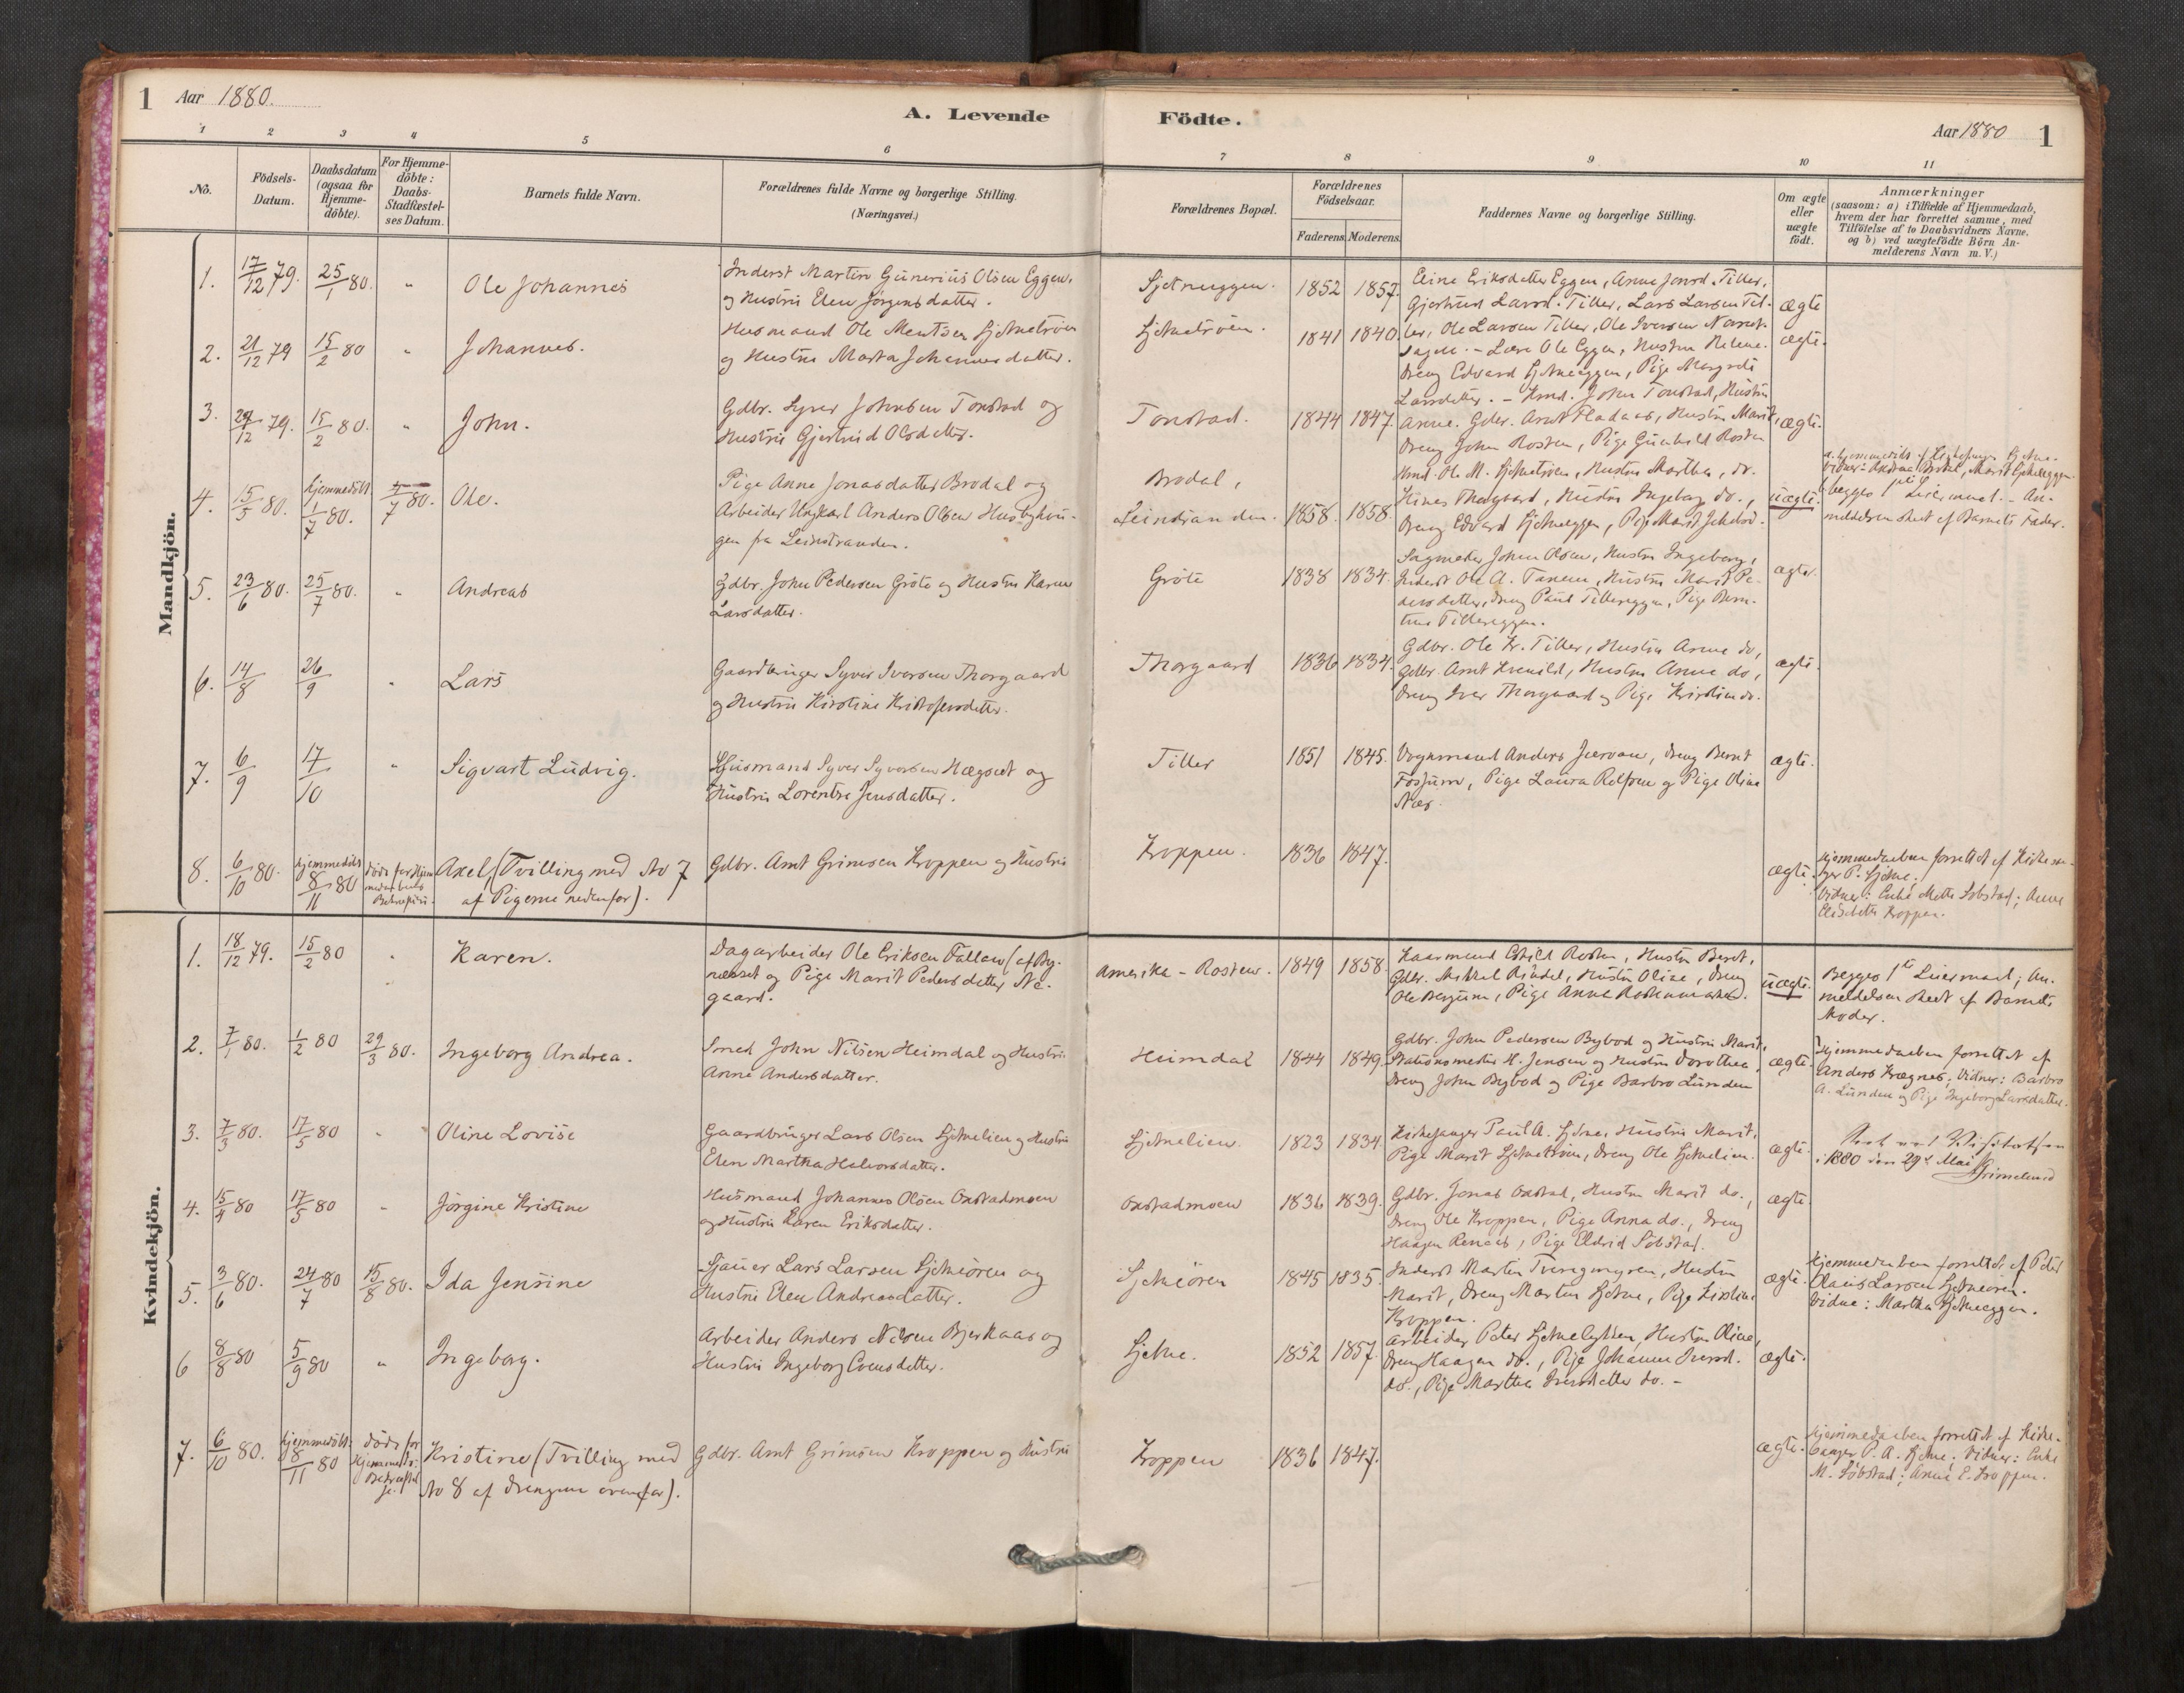 1 Aar 1880.
A. Levende
1 2 3 4 5 6
No.
Födsels-
Datum.
Daabsdatum
(ogsaa for
Hjemme-
döbte).
For Hjemme-
döbte:
Daabs-
Stadfæstel-
ses Datum.
Barnets fulde Navn.
Forældrenes fulde Navne og borgerlige Stilling.
(Næringsvei.)
Mandkjön.
1. 17/12 79. 25/1 80. " Ole Johannes
Inderst Martin Gunerius Olsen Eggen,
og Hustru Elen Jörgensdatter.
2. 21/12 79 15/2 80 " Johannes.
Husmand Ole Mentsen
og Hustru Marta Johannesdatter.
3. 27/12 79. 15/2 80. " John.
Gdbr. Syver Johnsen Tonstad og
Hustru Gjertrud Olsdatter.
4. 15/5 80. hjemmedöbt 1/7 80. 4/7 80. Ole.
Pige Anne Jonasdatter Brodal og
Arbeider Ungkarl Anders Olsen
gen fra Leinstranden.
5. 23/6 80. 25/7 80. " Andreas
Gdbr. John Pedersen Gröte og Hustru Karen
Larsdatter.
6. 14/8 26/9 " Lars
Gaardbruger Syver Iversen Thorgaard
og Hustru Kirstine Kristofersdatter.
7. 6/9 17/10 " Sigvart Ludvig.
Husmand Syver Syversen Hægset og
Hustru Lorentse Jensdatter.
8. 6/10 80. hjemmedöbt 8/11 80 döde för Hjem
Axel (Tvilling med No 7
af Pigerne nedenfor).
Gdbr. Arnt Grimsen Kroppen og Hustru
Kvindekjön.
1. 18/12 79. 15/2 80 " Karen.
Dagarbeider Ole Eriksen Fallan (af By-
næsset og Pige Marit Pedersdatter Ne-
gaard.
2. 7/1 80. 1/2 80 29/3 80. Ingeborg Andrea.
Smed John Nilsen Heimdal og Hustru
Anne Andersdatter.
3. 7/3 80. 17/5 80 " Oline Lovise
Gaardbruger Lars Olsen Sjetnelien og Hustru
Elen Martha Halvorsdatter.
4. 15/4 80 17/5 80 " Jörgine Kristine
Husmand Johannes Olsen Oxstadmoen
og Hustru Karen Eriksdatter.
5. 3/6 80. 24/7 80 15/8 80. Ida Jensine
Sjauer Lars Larsen Sjetneören og
Hustru Elen Andreasdatter.
6 8/8 80 5/9 80 " Ingeborg.
Arbeider Anders Nilsen Bjerkaas og
Hustru Ingeborg Evensdatter.
7. 6/10 80. hjemmedöbt 8/11 80 döde for
Kristine (Tvilling med
No 8 af Drengene ovenfor).
Gdbr. Arnt Grimsen Kroppen og Hustru
Födte.
Aar 1880 1
7 8 9 10 11
Forældrenes Bopæl.
Forældrenes
Födselsaar.
Faderens. Moderens.
Faddernes Navne og borgerlige Stilling.
Om ægte
eller
uægte
födt.
Anmærkninger
(saasom: a) i Tilfælde af Hjemmedaab,
hvem der har forrettet samme, med
Tilföielse af to Daabsvidners Navne,
og b) ved uægtefödte Börn An-
melderens Navn m. V.)
Sjetneeggen. 1852 1857.
Eline Eriksdatter Eggen, Anne Jonsd. Tiller,
Gjertrud Larsd. Tiller, Lars Larsen Til-
ægte
Sjetnetröen. 1841 1840.
ler, Ole Larsen Tiller, Ole Iversen
Ole Eggen, Hustru Helene.
Dreng Edvard Sjetneeggen, Pige Margrete
ægte.
Tonstad. 1844 1847.
Larsdatter. - Kmd. John Tonstad, Hustru
Anne. Gdbr. Arnt Fladaas, Hustru Marit,
Dreng John Rosten, Pige Gunhild Rosten
ægte.
Brodal,
Leinstranden. 1858. 1858.
Hmd. Ole M. Sjetnetröen, Hustru Martha, do.
Thorgaard, Hustru Ingeborg do.,
Dreng Edvard Sjetneeggen, Pige Marit
uægte.
begges 1ste Leiermaal. - An-
meldelsen skeet af Barnets Fader.
Gröte 1838 1834.
Johan Olsen, Hustru Ingeborg,
Inderst Ole A. Tanem, Hustru Marit Pe-
dersdatter, Dreng Paul Tillereggen, Pige Bern-
tine Tillereggen.
ægte.
Thorgaard 1836 1834.
Gdbr. Ole Kr. Tiller, Hustru Anne do,
Gdbr. Arnt Kvenild, Hustru Anne do,
Dreng Iver Thorgaard og Pige Kirstine do.
ægte.
Tiller 1851 1845.
Vognmand Anders Jervan, Dreng Bernt
Fossum, Pige Laura Rolfsen og Pige Oline
Næs.
ægte.
Kroppen. 1836 1847.
ægte.
Hjemmedaaben forrettet af Kirkesan-
ger P. Sjetne.
Vidner: Enke Mette Sobstad; Anne
Elisabeth Kroppen.
Amerika - Rosten. 1849 1858.
Kaarmand Eskild Rosten, Hustru Beret,
Gdbr. Mikkel Rindel, Hustru Oline, Dreng
Ole Bergum, Pige Anne
uægte.
Begges 1ste Leiermaal; An-
meldelsen skeet af Barnets
Moder.
Heimdal 1844 1849.
Gdbr. John Pedersen Bybod og Hustru Marit,
Stationsmester H. Jensen og Hustru Dorothea,
Dreng John Bybod og Pige Barbro Lunden
ægte.
Hjemmedaaben forrettet af
Anders Krægnes; Vidner: Barbro
A. Lunden og Pige Ingeborg Larsdatter.
Sjetnelien 1823 1834.
Kirkesanger Paul A. Sjetne, Hustru Marit,
Pige Marit Sjetnetröen, Dreng Ole Sjetnelien.
ægte.
i 1880 den 29de Mai Grimelund
Oxstadmoen 1836 1839.
Gdbr. Jonas Oxstad, Hustru Marit do.,
Dreng Ole Kroppen, Pige Anna do., Dreng
Haagen Renaas, Pige Eldrid Söbstad.
ægte.
Sjetneören 1845 1835.
Inderst Martin Tveregmyren, Hustru
Marit, Dreng Martin Sjetne, Pige Kirstine
Kroppen.
ægte.
Hjemmedaaben forrettet af Peter
Olaus Larsen Sjetneören.
Vidne: Martha Sjetneeggen.
Sjetne. 1852 1857.
Arbeider Peter Sjetnelykken, Hustru Oline,
Dreng Haagen do., Pige Johanne Iversd.
do., Pige Martha Iversdatter do. -
ægte.
Kroppen 1836 1847.
ægte.
Hjemmedaaben forrettet af Kirke-
sanger P. A. Sjetne; Vidner: Enke
M. Söbstad; Anne E. Kroppen.